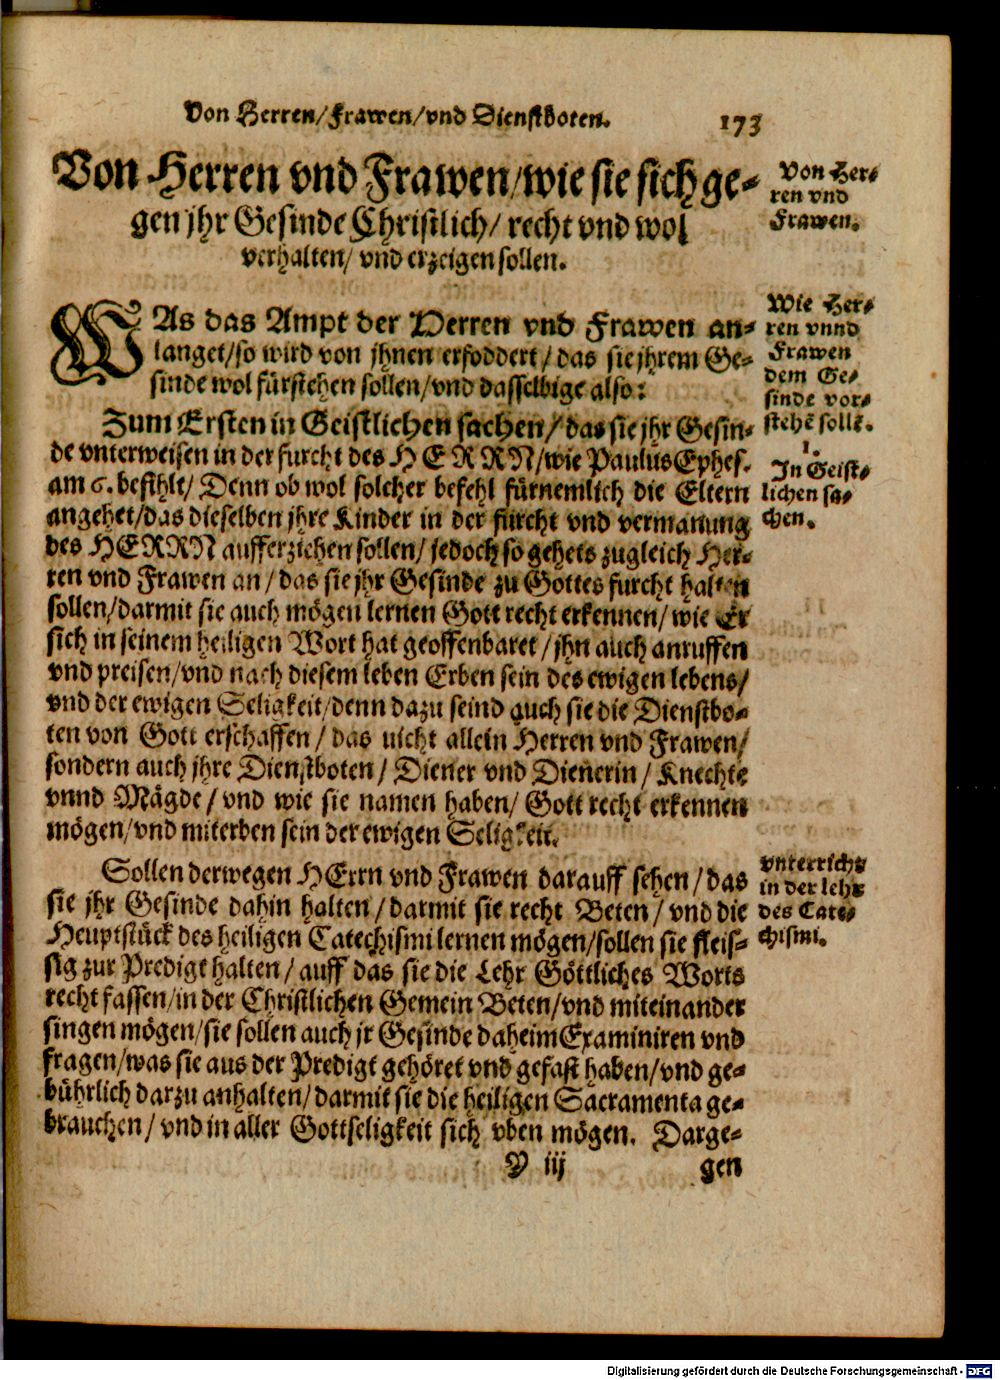 Von Herren/ Frawen/ vnd Dienstboten.
173
Von Herren vnd Frawen/ wie sie sich ge-
gen jhr Gesinde Christlich/ recht vnd wol
verhalten/ vnd erzeigen sollen.
Von Her-
ren vnd
Frawen.
WAs das Ampt der Herren vnd Frawen an-
langet/ so wird von jhnen erfoddert/ das sie jhrem Ge-
sinde wol fürstehen sollen/ vnd dasselbige also:
Wie Her-
ren vnnd
Frawen
dem Ge-
sinde vor-
stehẽ sollẽ.
Zum Ersten in Geistlichen sachen/ das sie jhr Gesin-
de vnterweisen in der furcht des HERRN/ wie Paulus Ephes.
am 6. befihlt/ Denn ob wol solcher befehl fürnemlich die Eltern
angehet/ das dieselben jhre Kinder in der furcht vnd vermanung
des HERRN aufferziehen sollen/ jedoch so gehets zugleich Her-
ren vnd Frawen an/ das sie jhr Gesinde zu Gottes furcht halten
sollen/ darmit sie auch mögen lernen Gott recht erkennen/ wie Er
sich in seinem heiligen Wort hat geoffenbaret/ jhn auch anruffen
vnd preisen/ vnd nach diesem leben Erben sein des ewigen lebens/
vnd der ewigen Seligkeit/ denn dazu seind auch sie die Dienstbo-
ten von Gott erschaffen/ das nicht allein Herren vnd Frawen/
sondern auch jhre Dienstboten/ Diener vnd Dienerin/ Knechte
vnnd Mägde/ vnd wie sie namen haben/ Gott recht erkennen
mögen/ vnd miterben sein der ewigen Seligkeit.
1.
In Geist-
lichen sa-
chen.
Sollen derwegen HErrn vnd Frawen darauff sehen/ das
sie jhr Gesinde dahin halten/ darmit sie recht Beten/ vnd die
Heuptstück des heiligen Catechismi lernen mögen/ sollen sie fleis-
sig zur Predigt halten/ auff das sie die Lehr Göttliches Worts
recht fassen/ in der Christlichen Gemein Beten/ vnd miteinander
singen mögen/ sie sollen auch jr Gesinde daheim Examiniren vnd
fragen/ was sie aus der Predigt gehöret vnd gefast haben/ vnd ge-
bührlich darzu anhalten/ darmit sie die heiligen Sacramenta ge-
brauchen/ vnd in aller Gottseligkeit sich vben mögen. Darge-
vnterricht
in der lehr
des Cate-
chismi.
Y iij
gen
Digitalisierung gefördert durch die Deutsche Forschungsgemeinschaft - DFG